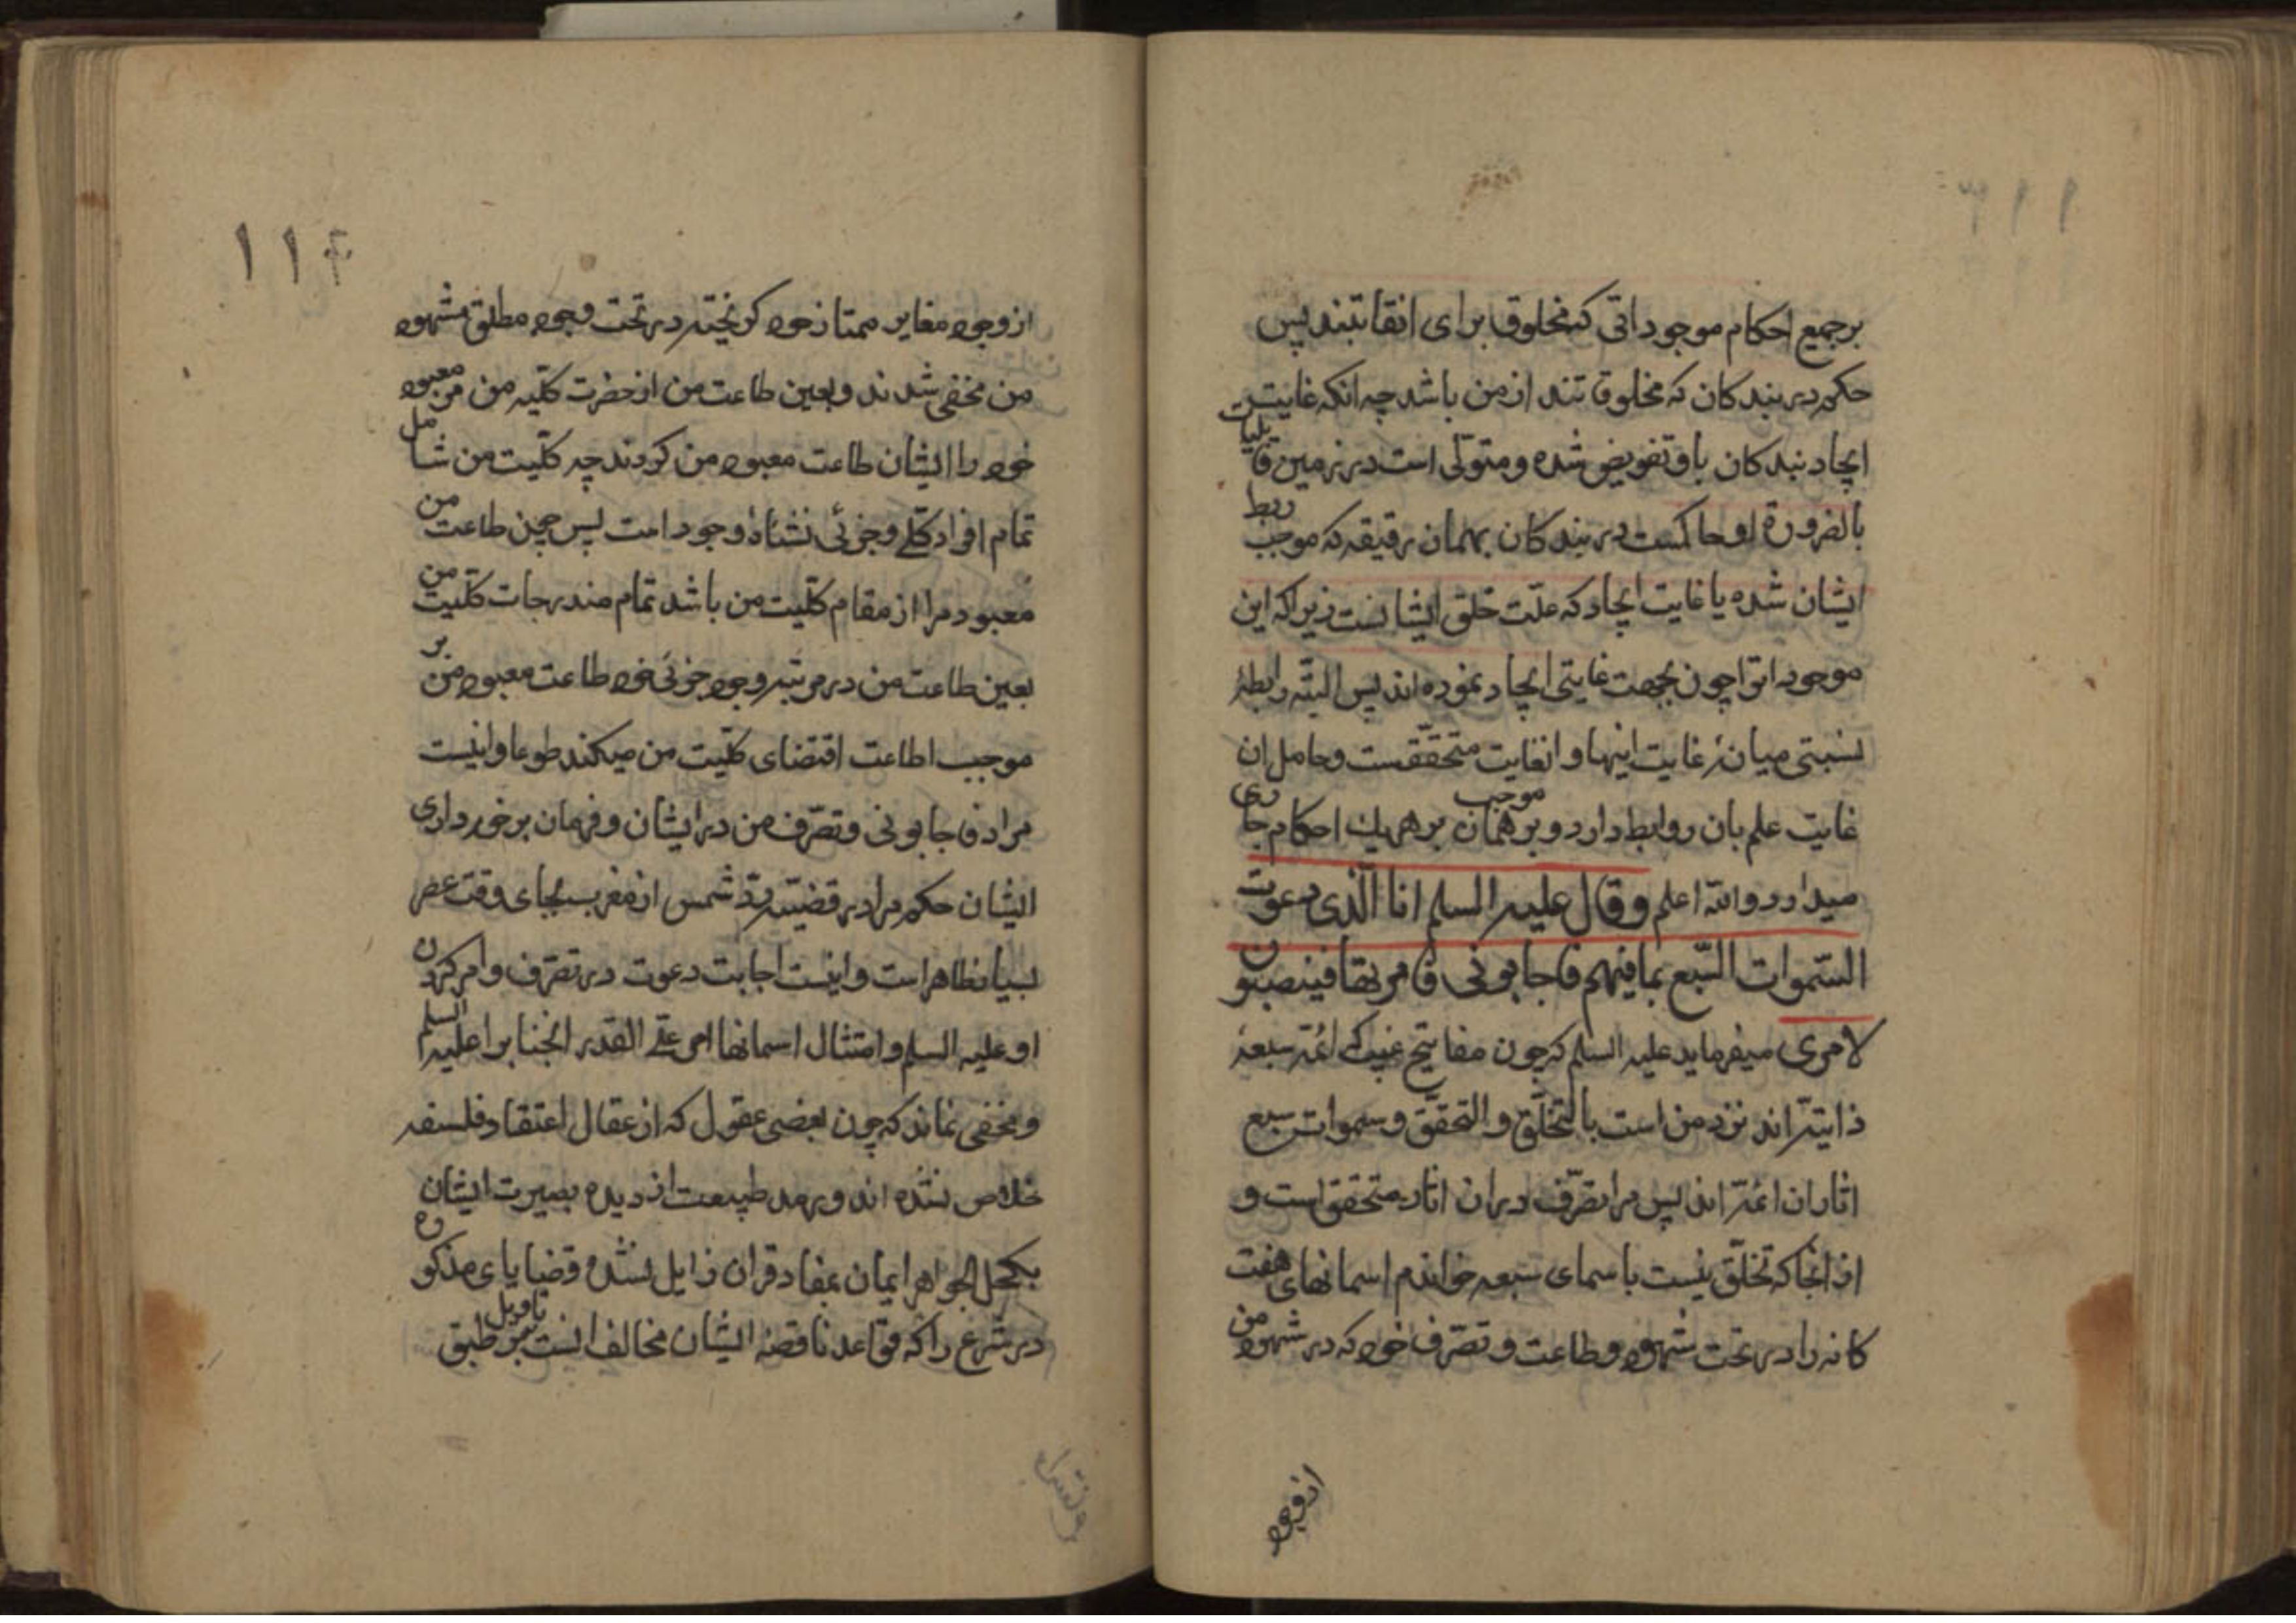 برجمیع احکام موجوداتی که مخلوق برای انقاتند پس
حکم در بندکان که مخلوق تند از من باشد چه انکه غایت
ایجاد بندکان باو تفویض شده و متولی است در زمین قابلیات
بالضرورة او حاکمست در بندکان بهمان رقیقه که موجب ربط
ایشان شده یا غایت ایجاد که علّت خلق ایشانست زیرا که این
موجوداترا چون بجهت غایتی ایجاد نموده اند پس البتّه رابطهٔ
نسبتی میانهٔ غایت اینها و انغایت متحقّقست و حامل ان
غایت علم بان روابط دارد و بر همان موجب بر هریك احکام جاری
میدارد والله اعلم وقال علیه السلم انا الّذی دعوت
السّموات السّبع بما فیهم فاجابونی فامرتها فینصبون
لامری میفرماید علیه السلم که چون مفاتیح غیب که ائمّه سبعهٔ
ذاتیّه اند نزد من است بالتخلّق والتحقّق و سموات سبع
اثار ان ائمّه اند پس مرا تصرّف در ان اثار متحقق است و
از انجا که تخلّق نیست باسمای سبعه خواندم اسمانهای هفت
کانه را در تحت شهود و طاعت و تصرّف خود که در شهود من
از وجود
۱۱۴
از وجود مغایر ممتاز خود کریخته در تحت وجود مطلق مشهود
من مخفی شدند و بعین طاعت من از حضرت کلّیه من مر معبود
خود را ایشان طاعت معبود من کردند چه کلّیت من شامل
تمام افراد کلّی و جزئی نشاهٔ وجود است پس چون طاعت من
معبود مرا از مقام کلّیت من باشد تمام مندرجات کلّیت من
بعین طاعت من در مرتبه وجود جزئی خود طاعت معبود من بر
موجب اطاعت اقتضای کلّیت من میکنند طوعا و اینست
مراد فاجابونی و تصّرف من در ایشان و فرمان برخورداری
ایشان حکم مرا در قضیّه ردّ شمس از مغرب بجای وقت عصر
بسیار ظاهر است و اینست اجابت دعوت در تصرّف و امر کردن
او علیه السلم و امتثال اسمانها امر علی القدر انجنابرا علیه السلم
و مخفی نماند که چون بعضی عقول که از عقال اعتقاد فلسفه
خلاص نشده اند و رمد طبیعت از دیده بصیرت ایشان
بکحل الجواهر ایمان بمفاد قران زایل نشده قضایای مذکوره
در شرع را که قواعد ناقصه ایشان مخالف انست تاویل بر طبق